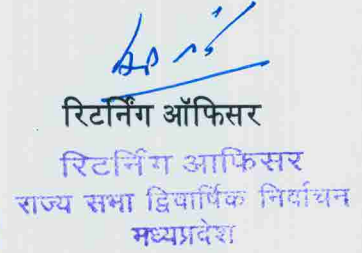 रिटर्निंग ऑफिसर
रिटर्निंग आफिसर
राज्य सभा द्विवार्षिक निर्वाचन
मध्यप्रदेश